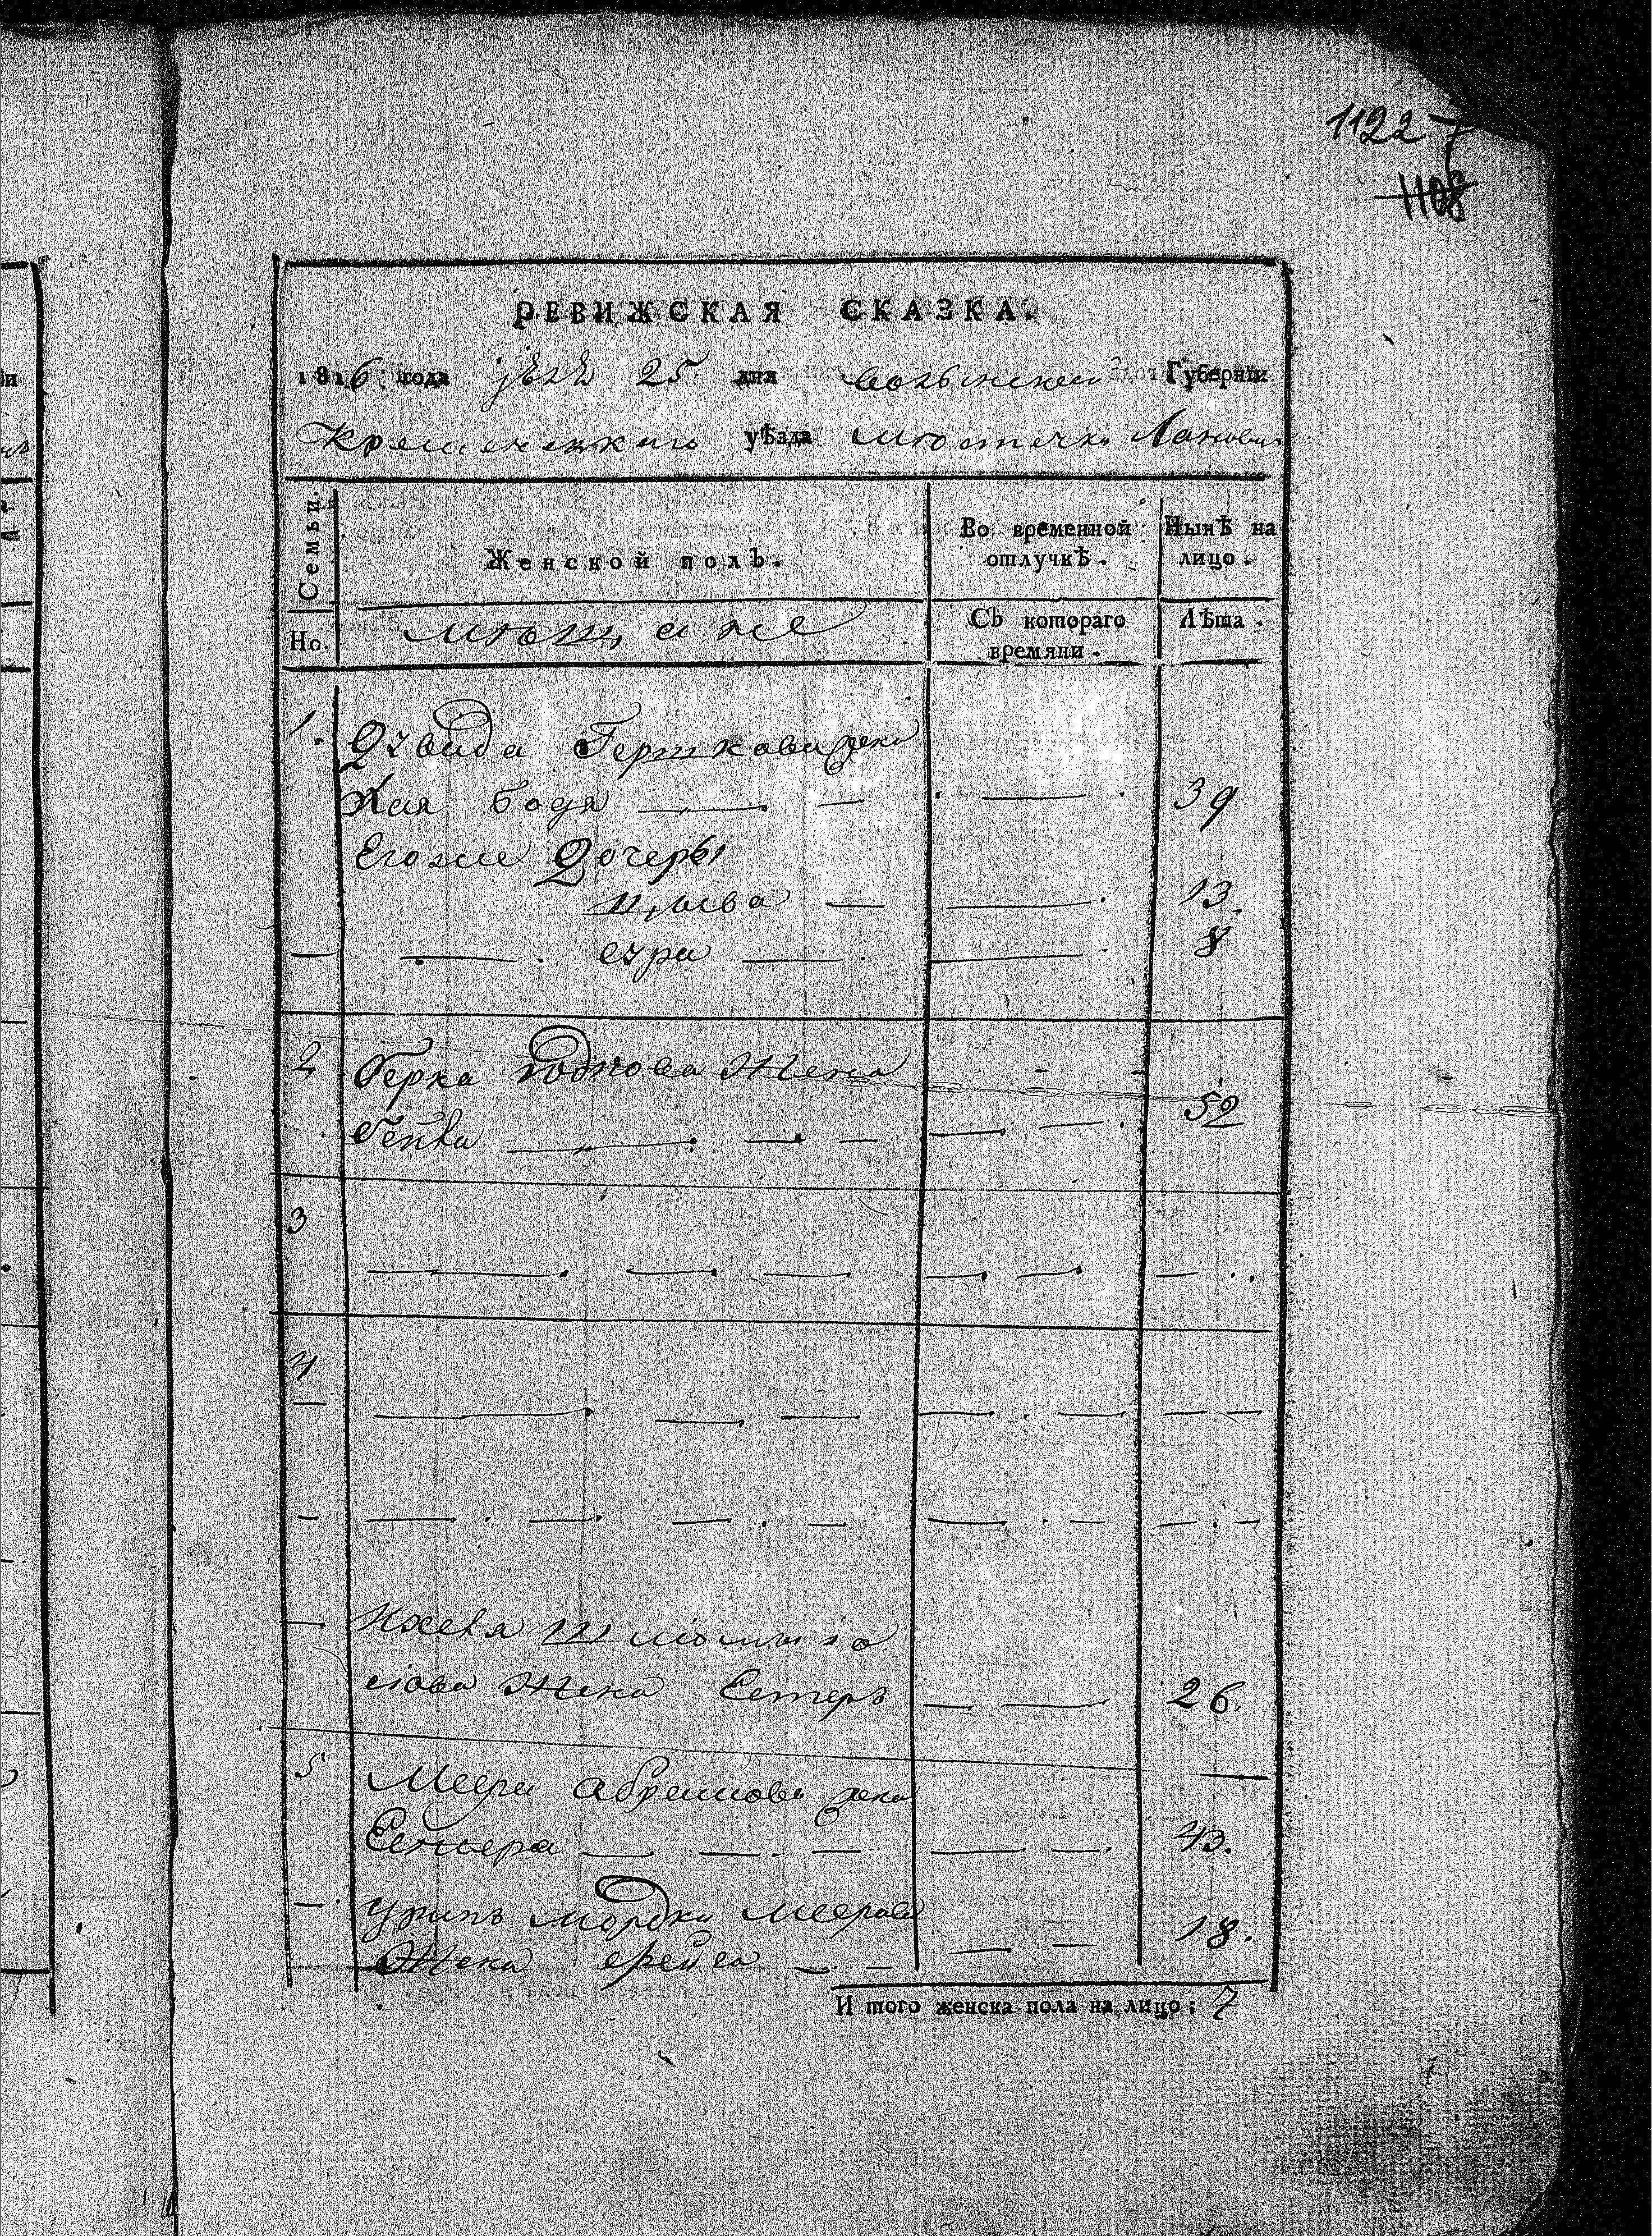 1122 7
1108
РЕВИЖСКАЯ СКАЗКА.
1816 года 25 дня волынской Губерніи
Кременецкаго уѣзда мѣстечка Лановиц
Семьи.
Женской полъ.
Во временной отлучкѣ.
Нынѣ на лицо.
Но.
мѣщане
Съ котораго времяни.
Лѣта.
1. Давида Гершкова жена
Хая бодя 39
Егоже дочеры
Цывва 13
сура 8
2 Берка жена
Бейла 52
3
4
Шлиомы
жена Естеръ 26.
5 Меера абрамова жена
Естера 43.
мордки меерова 18.
Жена фрейда
И того женска пола на лицо: 7